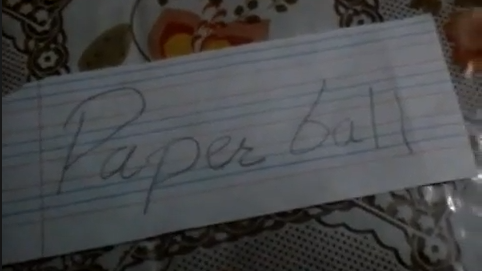 Paper ball